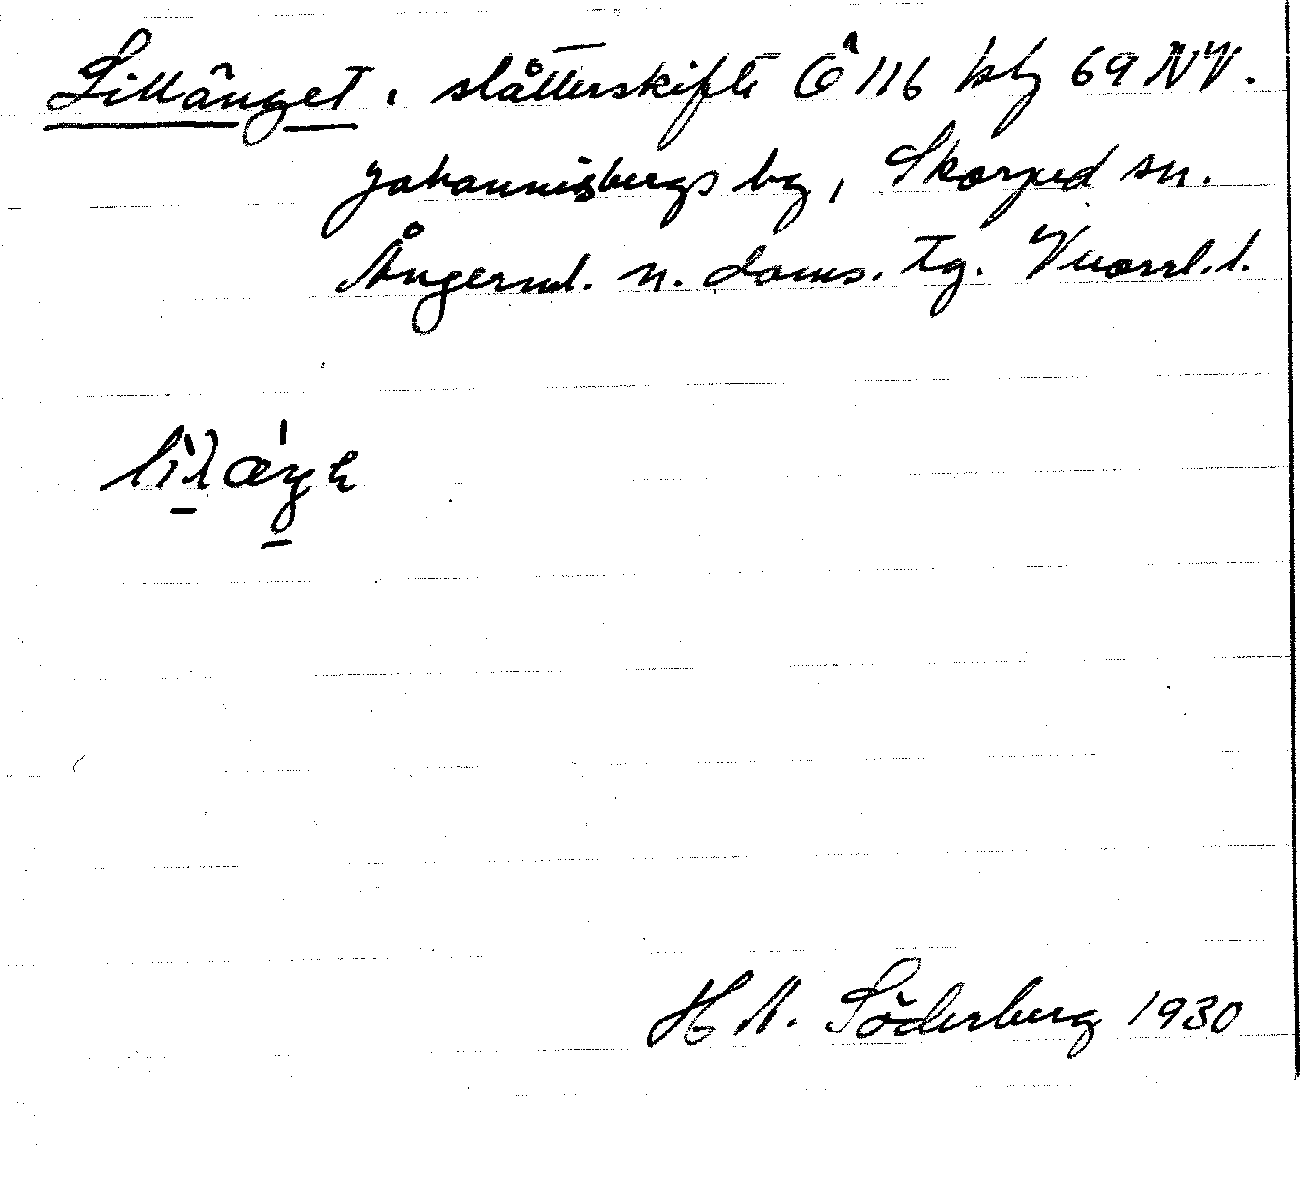 Lillänget, slåtterskifte Ö 116 kbl 69 NV.
Johannisbergs by, Skorped sn.
Ångerml. n. doms. tg. Vnorrl. l.
H A. Söderberg 1930